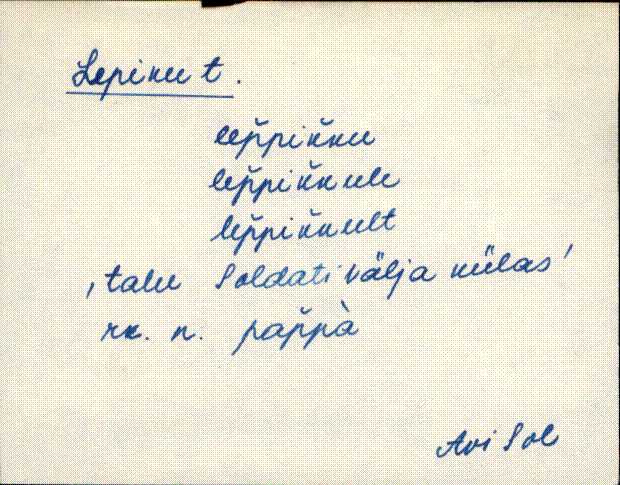 Lepiku t.
lep̌pik̆ku
lep̌pik̆kule
lep̌pik̆kult
, talu Soldativälja külas '
rk. n. pap̌pà
Avi Sol